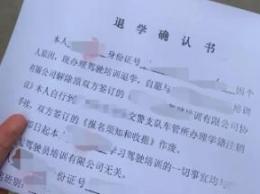 退学确认书
本人 身份证号 因个
人原因，现办理驾驶培训退学，自愿与 培训
有限公司解除原双方签订的 培训有限公司协
议）本人自行到 交警支队车管所办理学籍注销
手续，双方签订的《报名须知和收据》作废。
即日起本 习驾驶培训的一切事宜均与
驾驶员培训有限公司无关。
份证号